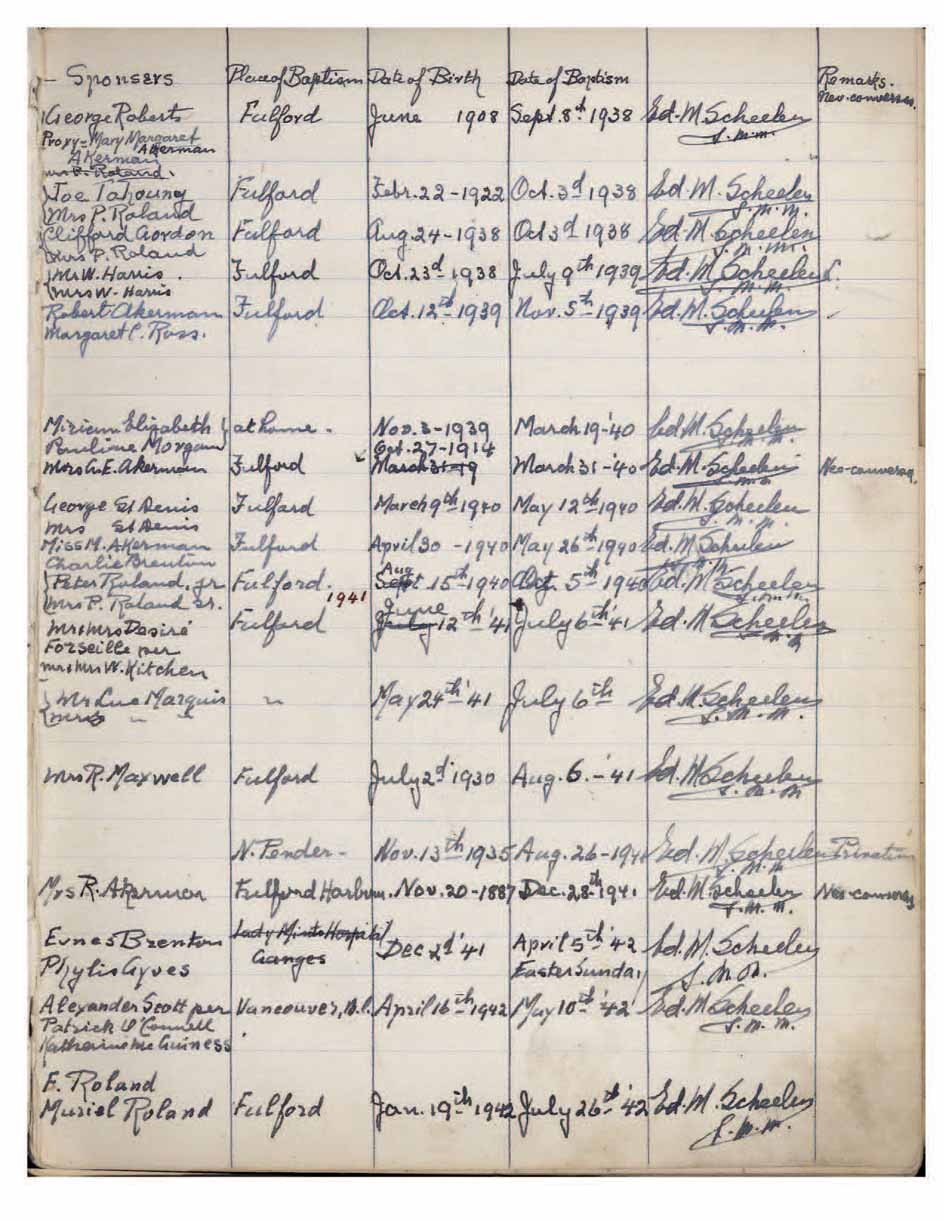 Sponsers Place of Baptism Date of Birth Date of Baptism Remarks.
Neo-converses.
George Roberts Fulford June 1908 Sept. 8th 1938 Ed. M. Scheelen
Proxy = Mary Margaret S.M.M.
Akerman Akerman
Mrs P. Roland.
Joe Tahouny Fulford Febr. 22-1922 Oct. 3d 1938 Ed. M. Scheelen
Mrs P. Roland S.M.M.
Clifford Gordon Fulford Aug. 24-1938 Oct 3d 1938 Ed. M. Scheelen
Mrs P. Roland S.M.M.
Mr W. Harris. Fulford Oct. 23d 1938 July 9th 1939 Ed. M. Scheelen
Mrs W. Harris S.M.M.
Robert Akerman Fulford Oct. 12th 1939 Nov. 5th 1939 Ed. M. Scheelen
Margaret C. Ross. S.M.M.
Miriam Elizabeth at home. Nov. 3-1939 March 19-'40 Ed M. Scheelen
Pauline Morgan Oct. 27-1914 S.M.M.
Mrs G.E. Akerman Fulford March 31-19 March 31-'40 Ed. M. Scheelen
S.M.M.
George St Denis Fulford March 9th 1940 May 12th 1940 Ed. M. Scheelen
Mrs St Denis S.M.M.
Miss M. Akerman Fulford April 30 -1940 May 26th 1940 Ed. M. Scheelen
Charlie Brenton Aug S.M.M.
Peter Roland, jr. Fulford. Sept 15th 1940 Oct. 5th 1940 Ed. M Scheelen
Mrs P. Roland sr. 1941 June S.M.M.
Mr & Mrs Desiré Fulford July 12th '41 July 6th '41 Ed. M. Scheelen
Forseille per S.M.M.
Mr & Mrs W. Kitchen
Mr Luc Marquis " May 24th '41 July 6th Ed. M. Scheelen
Mrs " " S.M.M.
Mrs R. Maxwell Fulford July 2d 1930 Aug. 6.-'41 Ed. M. Scheelen
S.M.M
N. Pender- Nov. 13th 1935 Aug. 26-1941 Ed. M. Scheelen
S.M.M
Mrs R. Akerman Fulford Harbour. Nov. 20-1887 Dec. 28th 1941 Ed. M. Scheelen
S.M.M.
Brenton Lady Minto Hospital Dec 2d '41 April 5th '42 Ed. M. Scheelen
Phylis Gyves Ganges Easter Sunday S.M.M.
Alexander Scott per Vancouver, B.C. April 16th 1942 May 10th '42 Ed. M. Scheelen
Patrick O'Connell S.M.M.
Katherine McGuiness
E. Roland
Muriel Roland Fulford Jan. 19th 1942 July 26th '42 Ed. M. Scheelen
S.M.M.